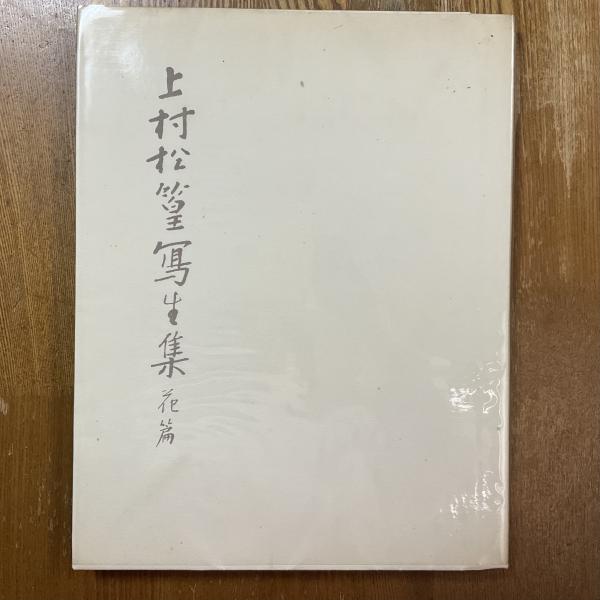 上村松篁寫生集 花篇